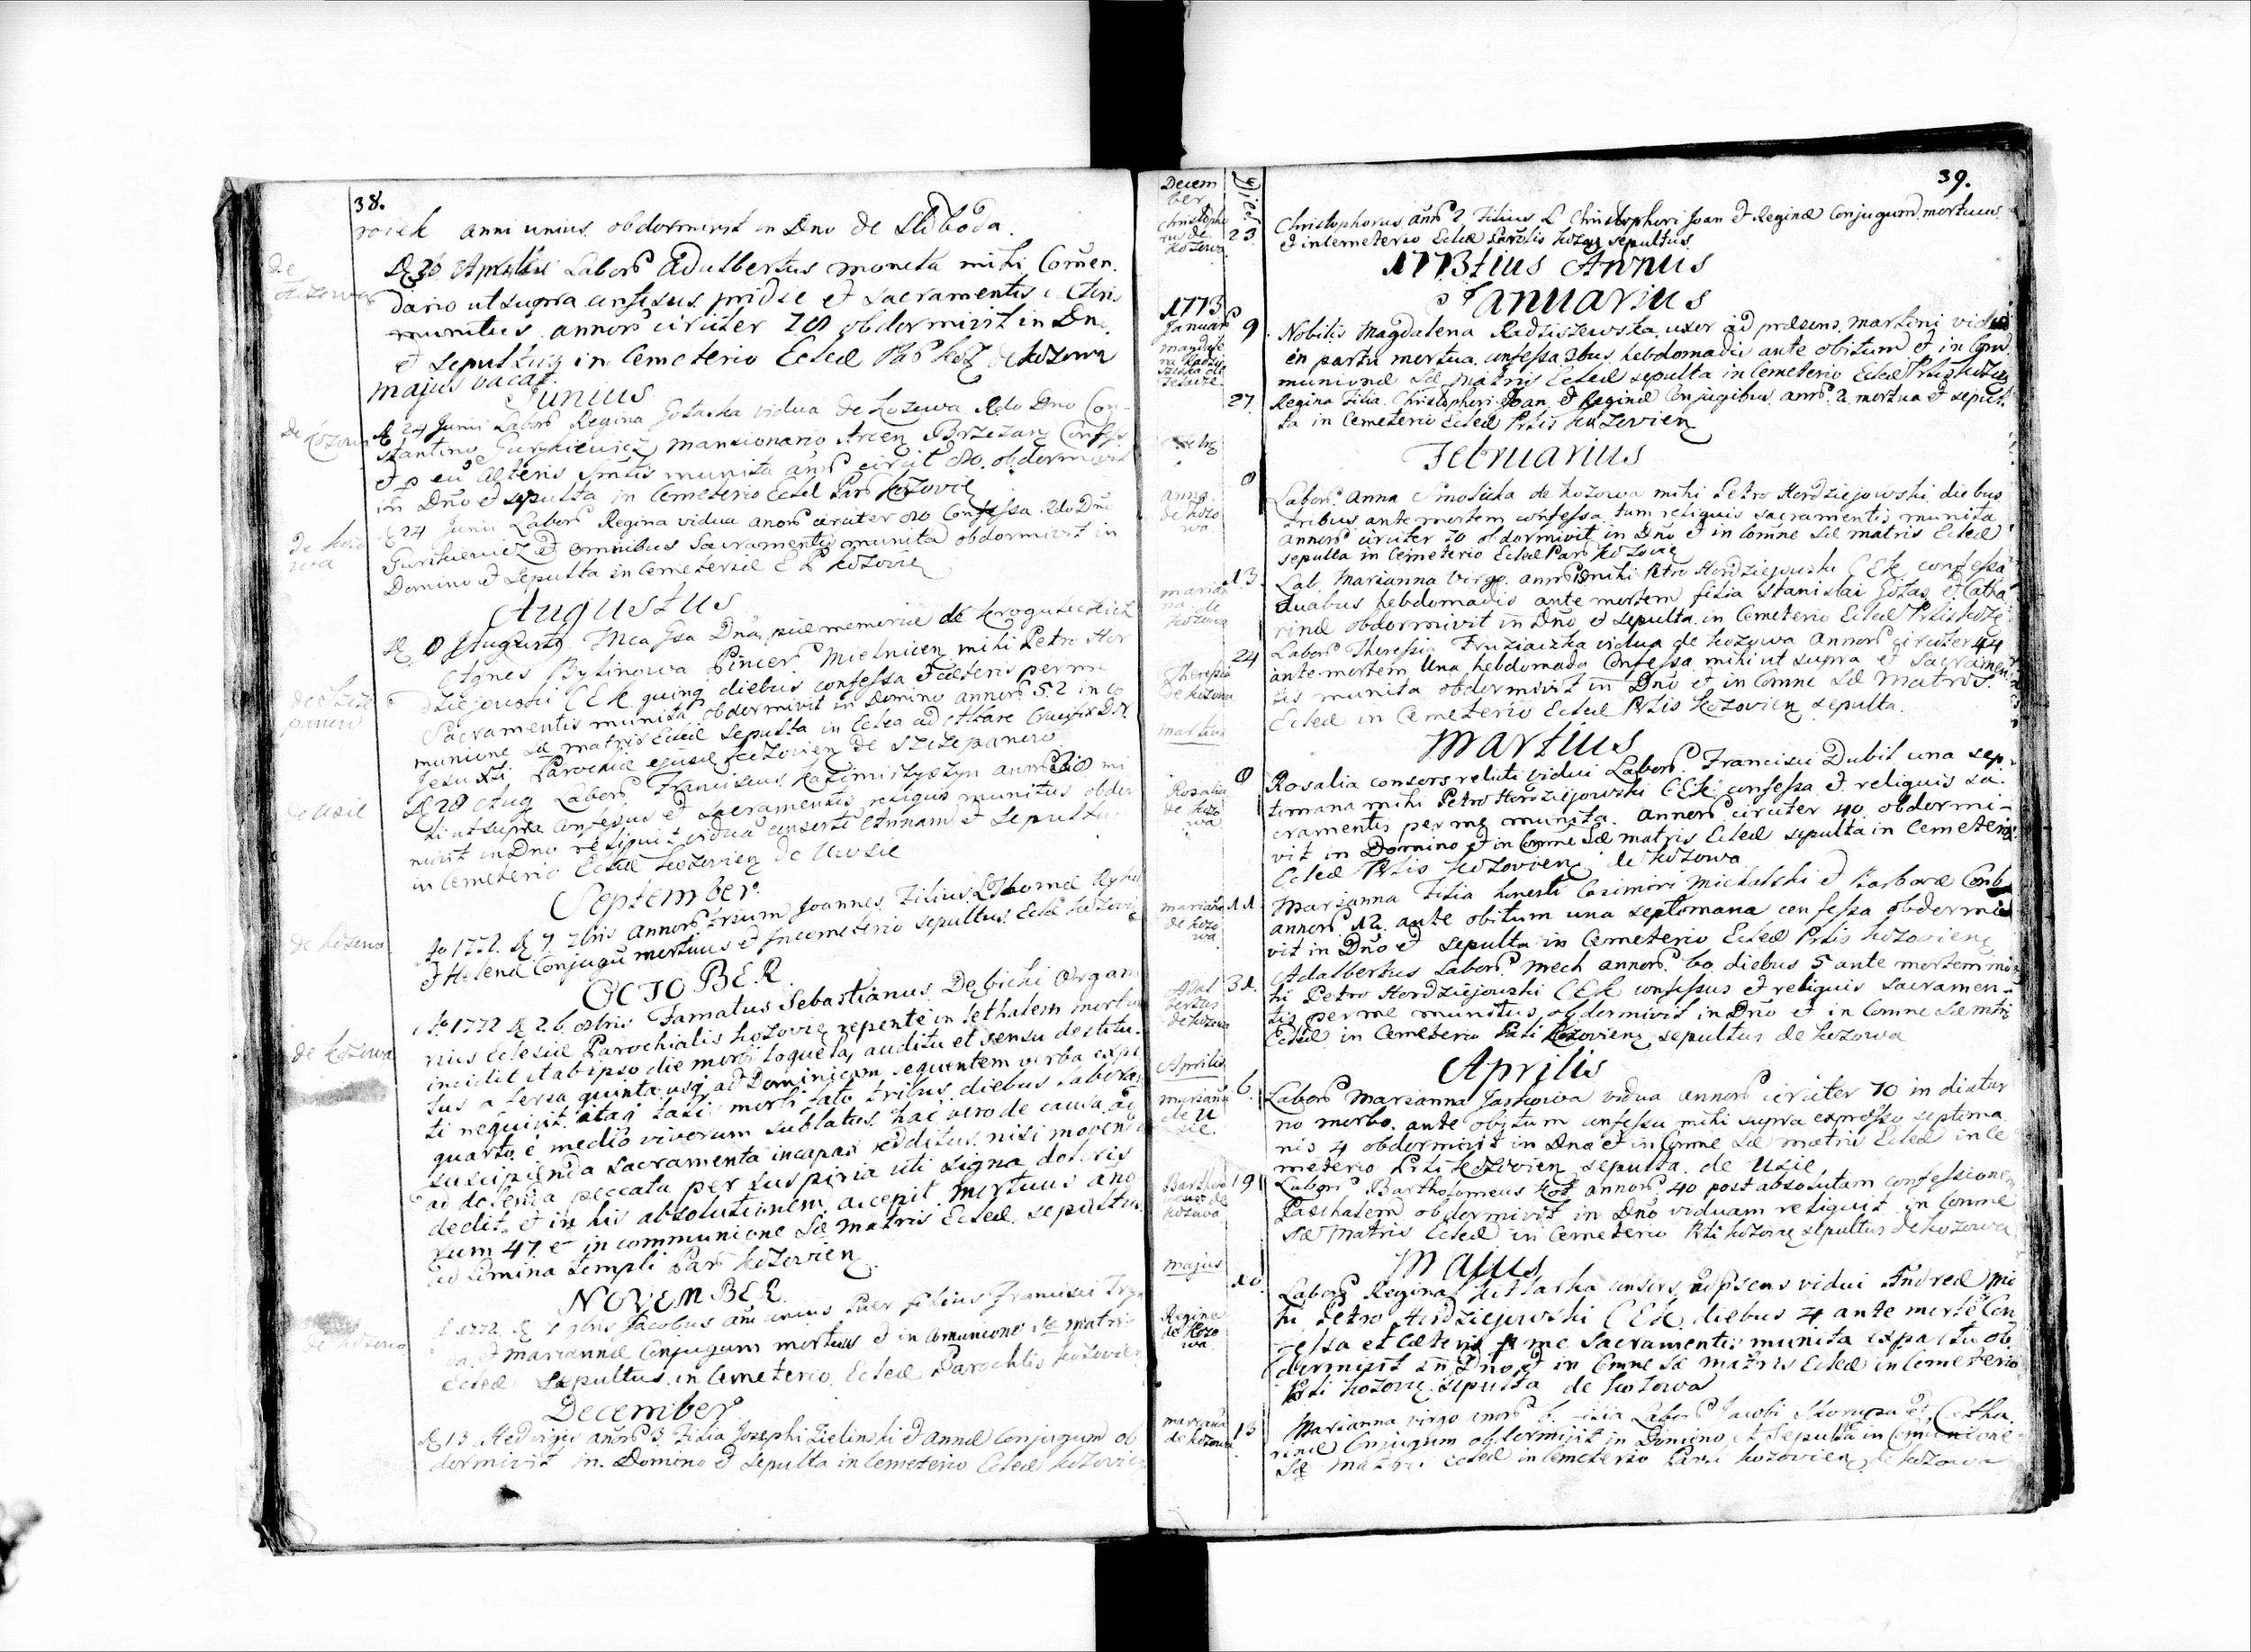 38.
rosek anni unius obdormivit in Dno de Sloboda.
de Kozowa
D. 26 Aprilis Labors Adalbertus Moneta mihi Comen.
dario ut supra confesus pridie et sacramentis
munitus annors circiter 70 obdormivit in Dno
et sepultus in Cemeterio Eclae Par Koz de Kozowa
Majus vacat
Junius
de Kozowa
24 Junii Labors Regina vidua de Kozowa Rdo Dno Con-
stantino Gurskiewicz Mansionario Arcen Brzezan Confess
et p eu caeteris Smtis munita ans circit 80. obdormivit
in Dno et sepulta in Cemeterio Ecle Par Kozovie
de Kozo
wa
24 Junii Labors Regina vidua anors circiter 80 Confessa Rdo Dno
Gurskiewicz et omnibus Sacramentis munita obdormivit in
Domino et sepulta in Cemeterio E P Kozovie
Augustus
8 Augusti Mca Gsa Dna piae memoriae de
Agnes Bylinowa Pincer Mielnicen mihi Petro Hor
dziejowski CEK quinq diebus confessa et caeteris per me
Sacramentis munita obdormivit in Domino annors 52 in co
munione Sae matris Eclae sepulta in Eclea ad Altare Crucifix DN
Jesu Xti Parochiae ejusdem Kozovien de Szczepanow
de Szcze
panow
de Usie
28 Aug Labors Franciscus annors mi
hi ut supra Confesus et sacramentis reliquis munitus obdor
mivit in Dno reliquit viduam consorte Annam et sepultus
in Cemeterio Eclae Kozovien de Uwsie
September
de Kozowa
Ao 1772. D. 7. 7bris annors trium Joannes Filius L Thomae
et Helenae Conjugu mortuus et in cemeterio sepultus Eclae Kozovie
OCTOBER
de Kozowa
Ao 1772 D 26 8bris Famatus Sebastianus Dębicki Organ
rius Eclesiae Parochialis Kozovie repente in lethalem morbum
incidit et ab ipso die morbi loquela, auditu et sensu destitu
tus a feria quinta usq ad Dominicam sequentem verba expi
ti nequivit. itaq tali morbi fato tribus diebus labora
quarto e medio vivorum sublatus. hac vero de causa ac
suscipienda sacramenta incapax redditus. nisi moven
ad dolenda peccata per suspiria uti signa doloris
dedit. et in his absolutionem accepit. Mortuus ano
rum 47. et in communione Sae Matris Eclae. sepultus
ad Limina templi Par Kozovien
NOVEMBER
de Kozowa
1772. D 7 9bris Jacobus ani unius Puer filius Francisci
et Mariannae Conjugum mortuus et in Comunione Sae Matris
Eclae sepultus in Cemeterio Eclae Parochlis Kozovien
December
D 13 Hedvigis anors 3 Filia Josephi Zielinski et Annae Conjugum ob
dormivit in Domino et sepulta in Cemeterio Eclae Kozovien
39.
Decem
ber
Dies
Christopho
rus de
Kozowa
23
Christophorus anors 2 Filius L Christophori Joan et Reginae Conjugum mortuus
et in Cemeterio Eclae Parclis Kozov sepultus
1773tius Annus
Januarius
1773
Januar
Magdale
na Radzi
szewska de
9
Nobilis Magdalena Radziszewska uxor ad praesens Martini vidui
in partu mortua. confessa 3bus hebdomadis ante obitum et in Com
munione Sae Matris Eclae sepulta in Cemeterio Eclae Prlis Kozov
27
Regina Filia Christophori Joan et Reginae Conjugibus anors 2 mortua et sepul
ta in Cemeterio Eclae Prlis Kozovien
Februarius
Anna
de Kozo
wa
8
Labors Anna de Kozowa mihi Petro Hordziejowski diebus
tribus ante mortem confessa tum reliquis sacramentis munita
annors circiter 70 obdormivit in Dno et in Comne Sae matris Eclae
sepulta in Cemeterio Eclae Paro Kozovie
Marian
na de
Kozowa
13
Lab. Marianna Virgo annors mihi Petro Hordziejowski CEK confessa
duabus hebdomadis ante mortem filia Stanislai Golas et Catha
rinae obdormivit in Dno et sepulta in Cemeterio Eclae Prlis Kozo
Theressia
de Kozowa
24
Labors Theressia Fruziaczka vidua de Kozowa annors circiter 44
ante mortem una hebdomada Confessa mihi ut supra et Sacramen
tis munita obdormivit in Dno et in Comne Sae Matris.
Eclae in Cemeterio Eclae Prlis Kozovien sepulta.
Martius
Martius
Rosalia
de Kozo
wa
8
Rosalia consors relicti vidui Labors Francisci Dubil una sep
timana mihi Petro Hordziejowski CEK confessa et reliquis sa-
cramentis per me munita. annors circiter 40 obdormi-
vit in Domino et in Comne Sae matris Eclae sepulta in Cemeterio
Eclae Prlis Kozovien de Kozowa
Marianna
de Kozo
wa
11
Marianna Filia honesti Casimiri Michalski et Barbarae Conb
annors 12 ante obitum una septimana confessa obdormi
vit in Dno et sepulta in Cemeterio Eclae Prlis Kozovien
Adal
bertus
de Kozowa
31.
Adalbertus Labors Mech annors 60 diebus 5 ante mortem mi
hi Petro Hordziejowski CEK confessus et reliquis sacramen-
tis per me munitus obdormivit in Dno et in Comne Sae mtris
Eclae in Cemeterio Prli Kozovien sepultus de Kozowa
Aprilis
Aprilis
Mariana
de U
sie.
6.
Labors Marianna Jaskowa vidua annors circiter 70 in diutur
no morbo. ante obitum confessa mihi supra expresso septima
nis 4 obdormivit in Dno et in Comne Sae matris Eclae in Ce
meterio Prli Kozovien sepulta. de Usie
Bartholo
meus de
Kozowa
19
Labors Bartholomeus Kos annors 40 post absolutam confessionem
Paschalem obdormivit in Dno viduam reliquit in Comne
Sae Matris Eclae in Cemeterio Prli Kozovie sepultus de Kozowa
Majus
Majus
Regina
de Kozo
wa
10
Labors Regina consors ad psens vidui Andreae mi
hi Petro Hordziejowski CEK diebus 4 ante morte Con
fessa et caeteris p me Sacramentis munita ex partu ob
dormivit in Dno et in Comne Sae Matris Eclae in Cemeterio
Prli Kozovie sepulta de Kozowa
Mariana
de Kozowa
13
Marianna virgo anors 6. filia Labors Jacobi Skorupa et Catha
rinae Conjugum obdormivit in Domino et Sepulta in Comunione
Sae Matris Eclae in Cemeterio Parli Kozovien de Kozowa